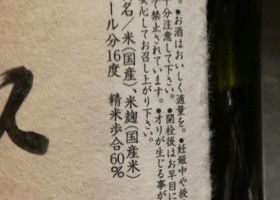 ●お酒はおいしく適量を。●妊娠中や授
十分注意して下さい。●開栓後はお早目に
で禁止されています。●オリが生じる事が
安心してお召し上がり下さい。
名／米(国産)、米麹(国産米)
ール分16度 精米歩合60%